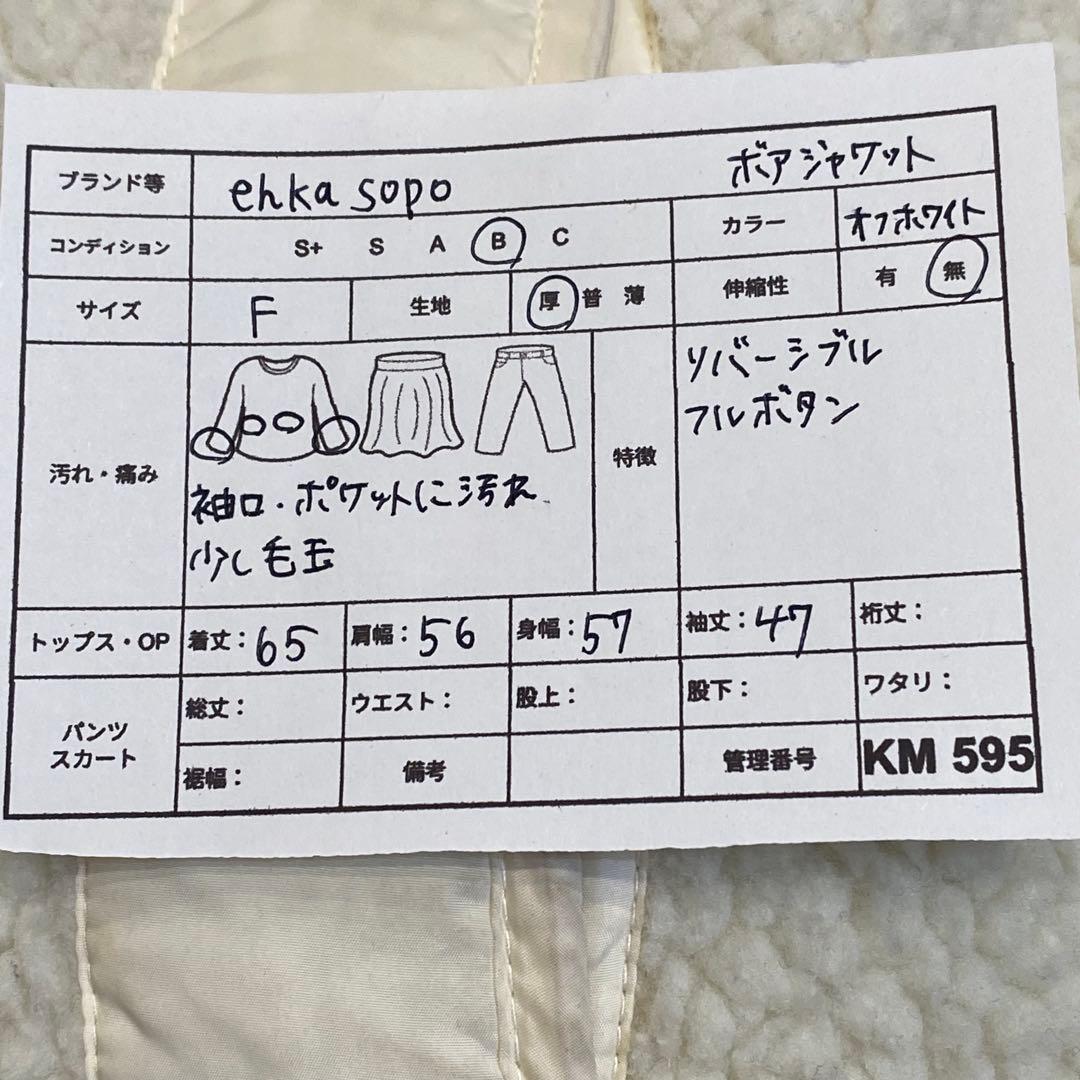 ブランド等 ehka sopo ボアジャケット
コンディション S+ S A B C カラー オフホワイト
サイズ F 生地 厚 普 薄 伸縮性 有 無
汚れ・痛み
袖口・ポケットに汚れ
少し毛玉
特徴
リバーシブル
フルボタン
トップス・OP 着丈：65 肩幅：56 身幅：57 袖丈：47 裄丈：
パンツ
スカート
総丈： ウエスト： 股上： 股下： ワタリ：
裾幅： 備考 管理番号 KM 595